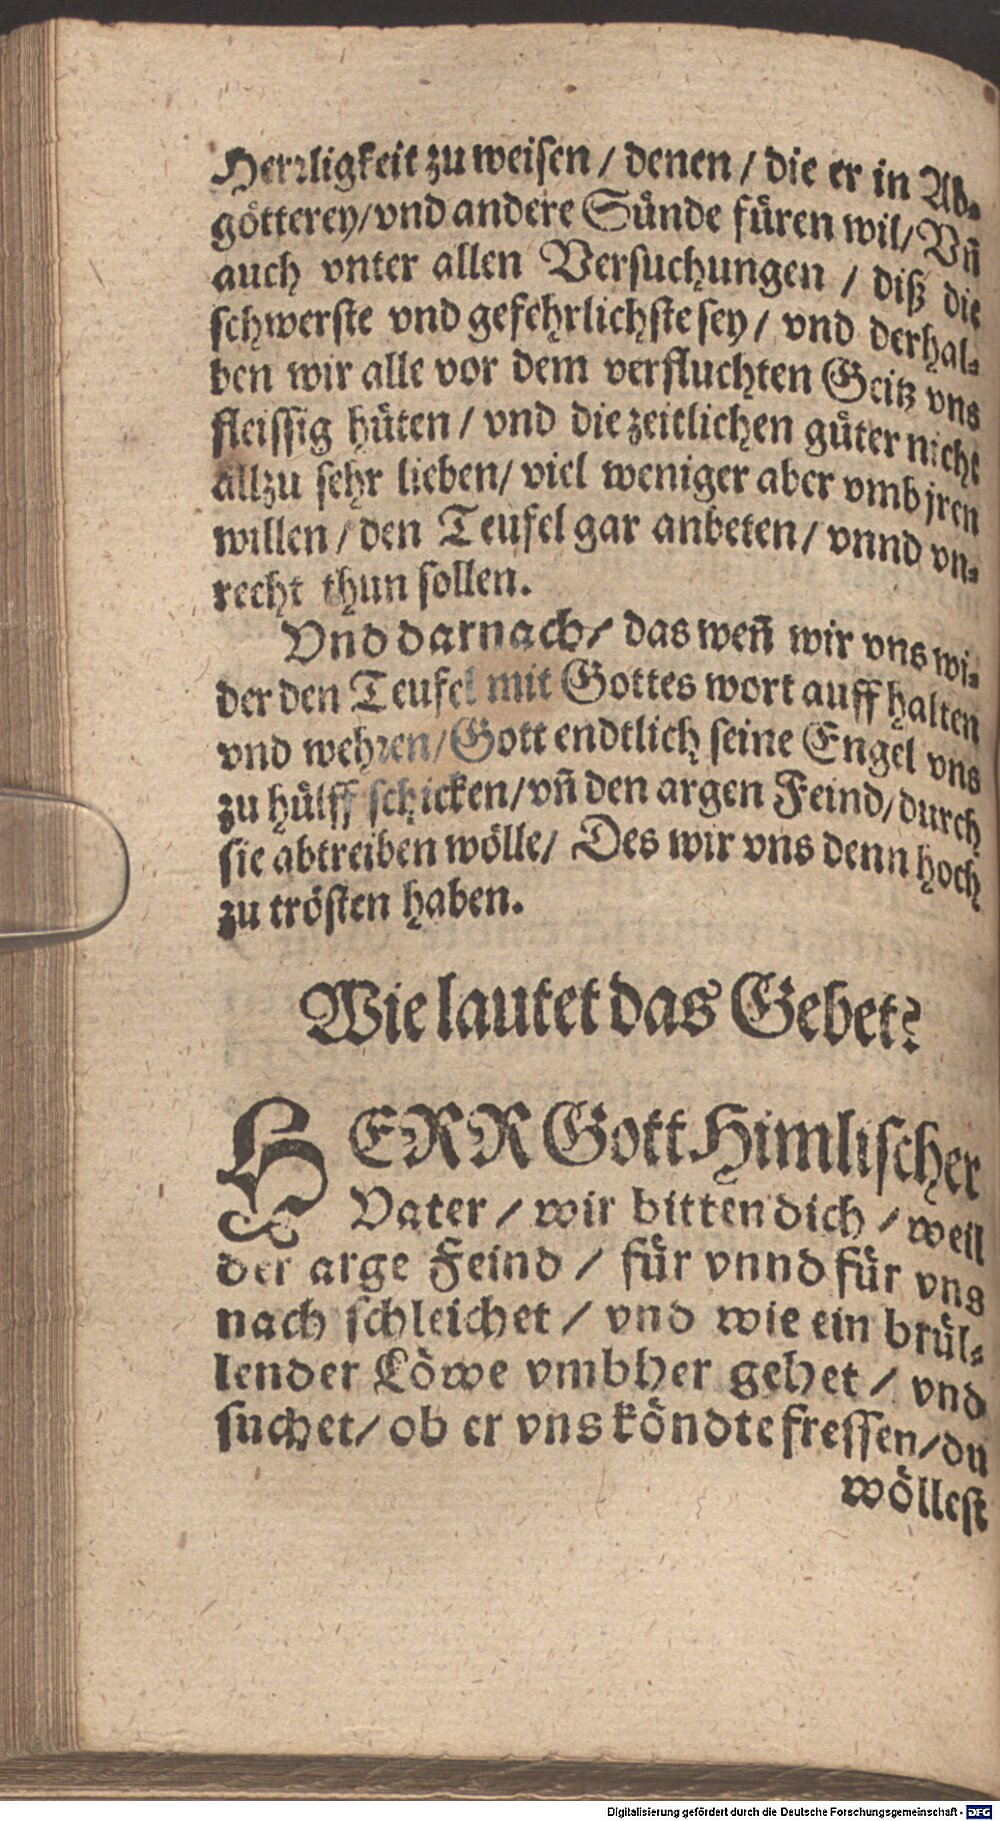 Herrligkeit zu weisen / denen / die er in Ab-
götterey/vnd andere Sünde füren wil/ Vñ
auch vnter allen Versuchungen / diß die
schwerste vnd gefehrlichste sey / vnd derhal-
ben wir alle vor dem verfluchten Geitz vns
fleissig hüten / vnd die zeitlichen güter nicht
allzu sehr lieben/ viel weniger aber vmb jren
willen / den Teufel gar anbeten / vnnd vn-
recht thun sollen.
Vnd darnach/ das weñ wir vns wi-
der den Teufel mit Gottes wort auff halten
vnd wehren/Gott endtlich seine Engel vns
zu hülff schicken/vñ den argen Feind/durch
sie abtreiben wölle/ Des wir vns denn hoch
zu trösten haben.
Wie lautet das Gebet?
HERR Gott Himlischer
Vater / wir bitten dich / weil
der arge Feind / für vnnd für vns
nach schleichet / vnd wie ein brül-
lender Löwe vmbher gehet / vnd
suchet/ ob er vns köndte fressen/du
wöllest
Digitalisierung gefördert durch die Deutsche Forschungsgemeinschaft - DFG